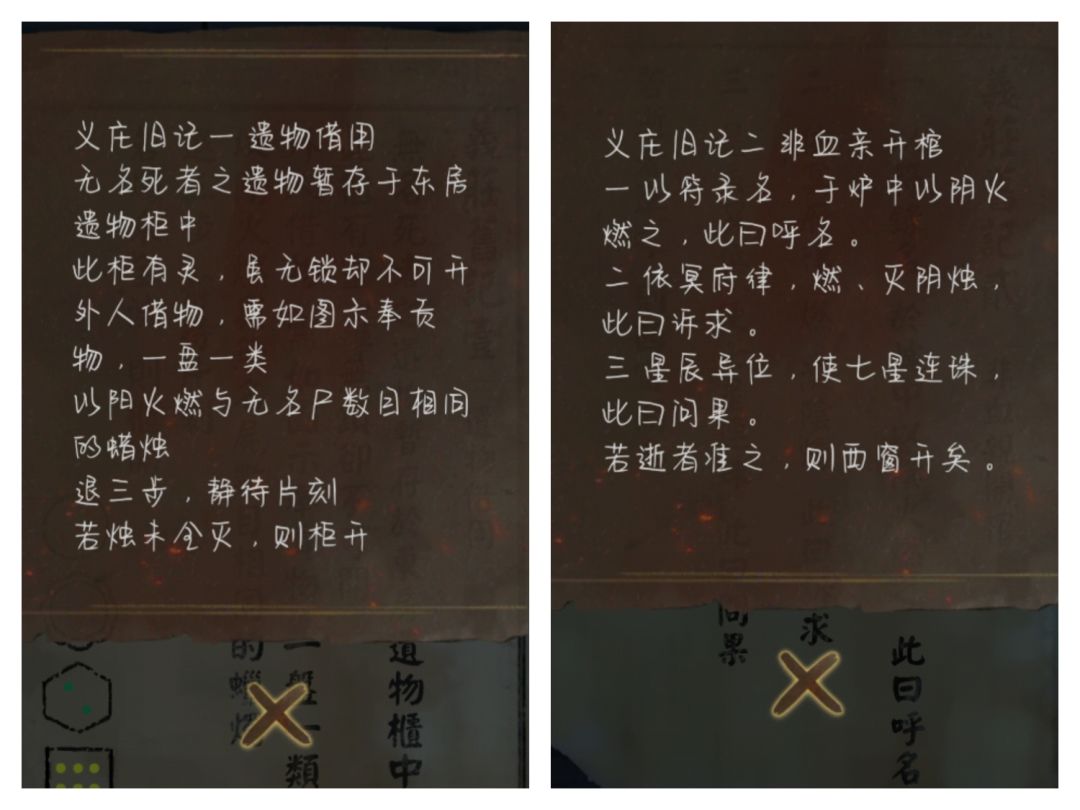 义庄旧记一 遗物借用
无名死者之遗物暂存于东居
遗物柜中
此柜有灵，虽无锁却不可开
外人借物，需如图示奉贡
物，一盘一类
以阳火燃与无名尸数目相同
的蜡烛
退三步，静待片刻
若烛未全灭，则柜开
的蠟燭
一盤一類
遺物櫃中
义庄旧记二 非血亲开棺
一以符录名，于炉中以阴火
燃之，此曰呼名。
二依冥府律，燃、灭阴烛，
此曰诉求。
三星辰异位，使七星连珠，
此曰问果。
若逝者准之，则西窗开矣。
問果
求
此曰呼名